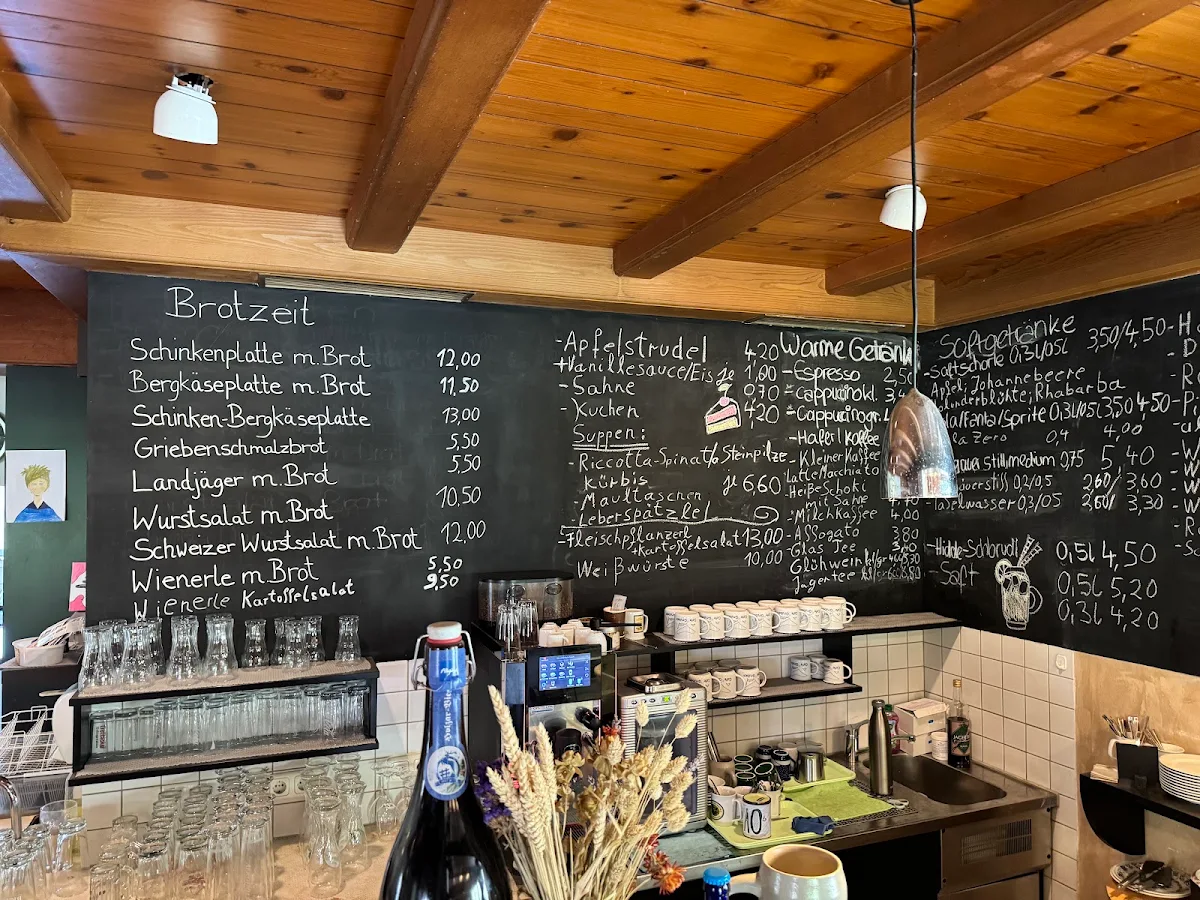 Brotzeit
Schinkenplatte m. Brot 12,00
Bergkäseplatte m. Brot 11,50
Schinken-Bergkäseplatte 13,00
Griebenschmalzbrot 5,50
Landjäger m. Brot 5,50
Wurstsalat m. Brot 10.50
Schweizer Wurstsalat m. Brot 12,00
Wienerle m. Brot 5,50
Wienerle Kartoffelsalat 9,50
-Apfelstrudel 4,20
+Vanillesauce/Eis je 1,00
-Sahne 0,70
-Kuchen 4,20
Suppen:
-Riccotta-Spinat/o Steinpilze
Kürbis
-Maultaschen je 6,60
-Leberspätzle
-Fleischpflanzerl
+Kartoffelsalat 13,00
Weißwürste 10,00
Warme Getränk
-Espresso 2,50
-Cappuccino kl.
-Cappucino gr.
-Haferl Kaffee
-Kleiner Kaffee
Latte Macchiato
-Heiße Schoki
mit Sahne
-Milchkaffee 4,00
-Affogato 3,80
-Glas Tee
-Glühwein
Jagertee
Softgetränke
-Saftschorle 0,3l/05l 3,50/4,50
Apfel; Johannebeere
Rhabarba
/Fanta/Sprite 0,3l/05l 3,50 4,50
Zero 0,4 4,00
still/medium 0,75 5,40
0,2/0,5 2,60/3,60
Tafelwasser 0,3/05 2,60/3,30
0,5l 4,50
-Saft 0,5l 5,20
0,3l 4,20